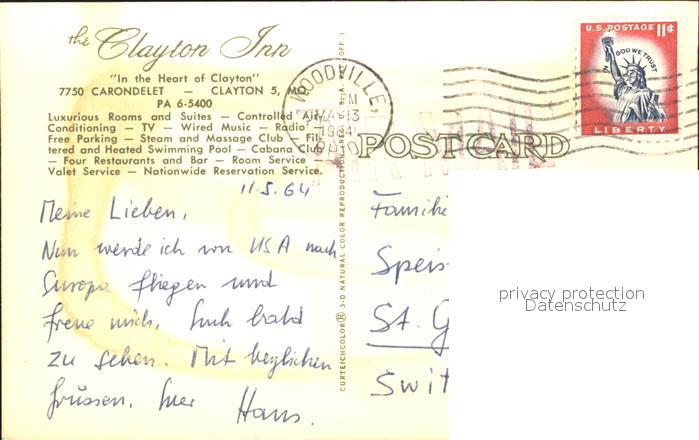 the Clayton Inn
"In the Heart of Clayton"
7750 CARONDELET — CLAYTON 5, MO.
PA 6-5400
Luxurious Rooms and Suites — Controlled Air
Conditioning — TV — Wired Music — Radio —
Free Parking — Steam and Massage Club — Fil-
tered and Heated Swimming Pool — Cabana Club
— Four Restaurants and Bar — Room Service —
Valet Service — Nationwide Reservation Service.
11.5.64
Meine Lieben,
Nun werde ich von USA nach
Europa fliegen und
freue mich, Euch bald
zu sehen. Mit herzlichen
Grüssen, Euer Hans.
CURTEICHCOLOR® 3-D NATURAL COLOR REPRODUCTION
WOODVILLE
MAY 13
1964
POST CARD
U.S. POSTAGE 11¢
IN GOD WE TRUST
LIBERTY
Familie
Speis
St. G
Swit
privacy protection
Datenschutz